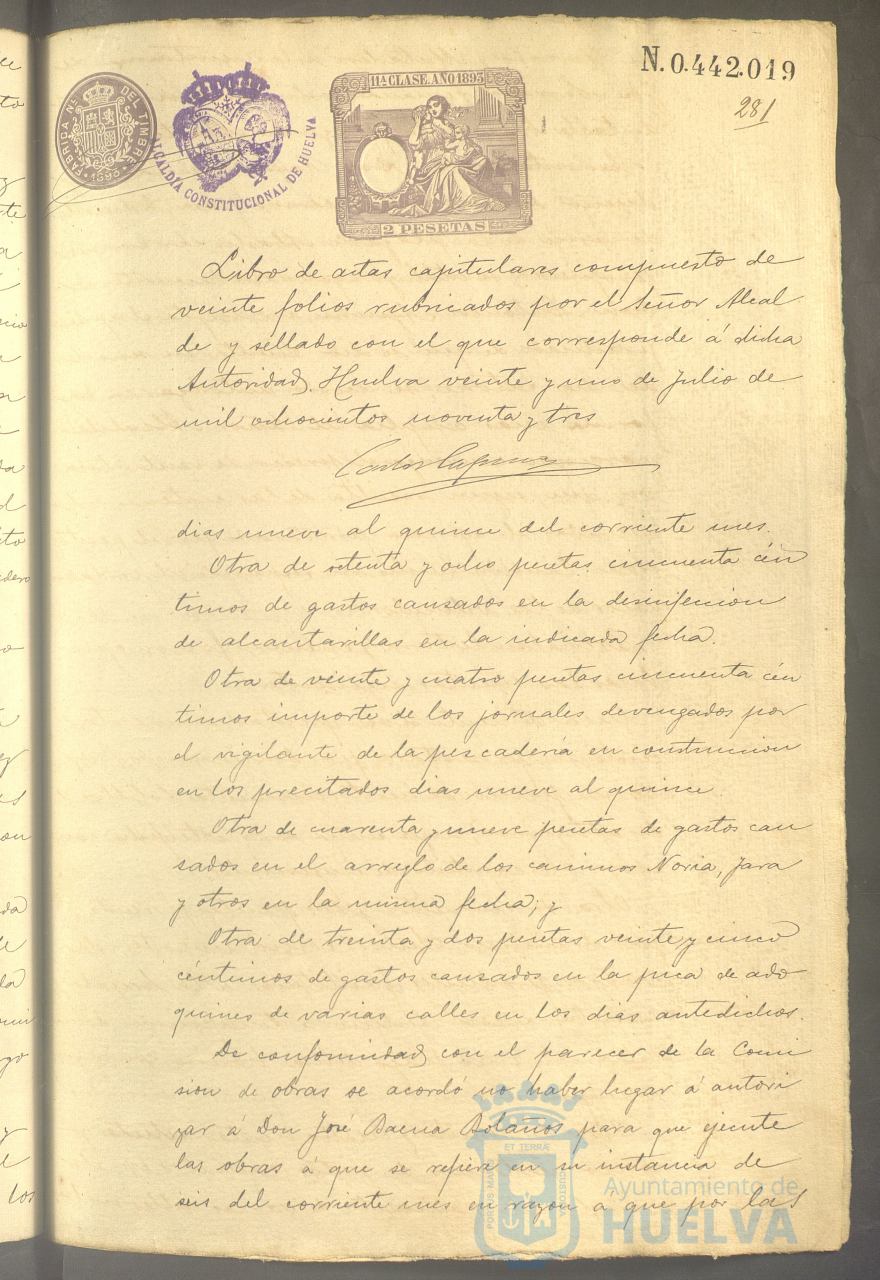 N. 0.442.019
281
FABRICA NAL. DEL TIMBRE
1893
ALCALDÍA CONSTITUCIONAL DE HUELVA
11ª CLASE. AÑO 1893
2 PESETAS
Libro de actas capitulares compuesto de
veinte folios rubricados por el Señor Alcal
de y sellado con el que corresponde á dicha
Autoridad. Huelva veinte y uno de Julio de
mil ochocientos noventa y tres
Carlos
dias nueve al quince del corriente mes.
Otra de setenta y ocho pesetas cincuenta cén
timos de gastos causados en la desinfeccion
de alcantarillas en la indicada fecha.
Otra de veinte y cuatro pesetas cincuenta cén
timos importe de los jornales devengados por
el vigilante de la pescadería en construccion
en los precitados dias nueve al quince.
Otra de cuarenta y nueve pesetas de gastos cau
sados en el arreglo de los caminos Noria, Jara
y otros en la misma fecha; y
Otra de treinta y dos pesetas veinte y cinco
céntimos de gastos causados en la pica de ado
quines de varias calles en los dias antedichos.
De conformidad con el parecer de la Comi
sion de obras se acordó no haber lugar á autori
zar á Don José Baena Bolaños para que ejecute
las obras á que se refiere en su instancia de
seis del corriente mes en razon á que por las
PORTUS MARIS ET TERRÆ CUSTODIA
Ayuntamiento de
HUELVA